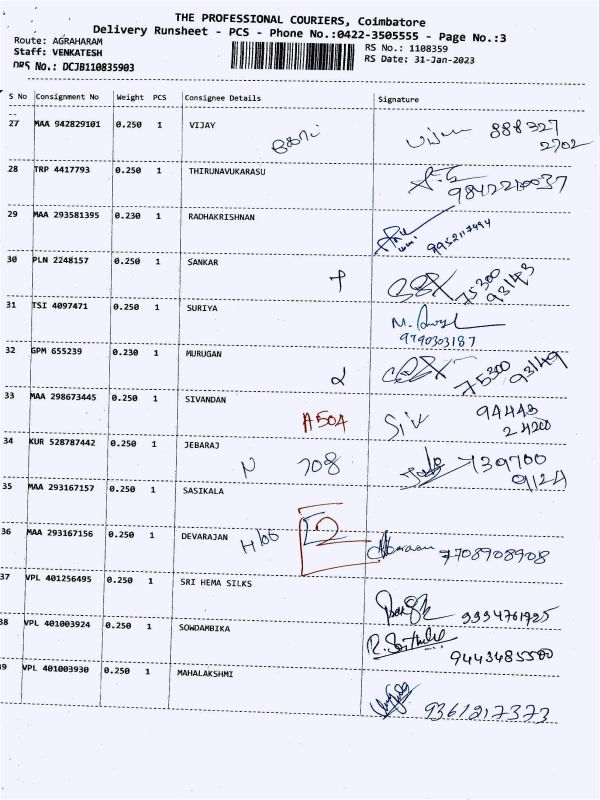 THE PROFESSIONAL COURIERS, Coimbatore
Delivery Runsheet - PCS - Phone No.:0422-3505555 - Page No.:3
Route: AGRAHARAM
RS No.: 1108359
Staff: VENKATESH
RS Date: 31-Jan-2023
DRS No.: DCJB110835903
S No Consignment No Weight PCS Consignee Details Signature
27 MAA 942829101 0.250 1 VIJAY 888327
2702
28 TRP 4417793 0.250 1 THIRUNAVUKARASU
9842210037
29 MAA 293581395 0.230 1 RADHAKRISHNAN
9952117494
30 PLN 2248157 0.250 1 SANKAR 75300
93149
31 TSI 4097471 0.250 1 SURIYA
9790303187
32 GPM 655239 0.230 1 MURUGAN 75300 93149
33 MAA 298673445 0.250 1 SIVANDAN A504 Siv 94443
24200
34 KUR 528787442 0.250 1 JEBARAJ N 708 739700
9124
35 MAA 293167157 0.250 1 SASIKALA
36 MAA 293167156 0.250 1 DEVARAJAN 7708908908
37 VPL 401256495 0.250 1 SRI HEMA SILKS
9994761925
38 VPL 401003924 0.250 1 SOWDAMBIKA
9443485500
39 VPL 401003930 0.250 1 MAHALAKSHMI
9361217373